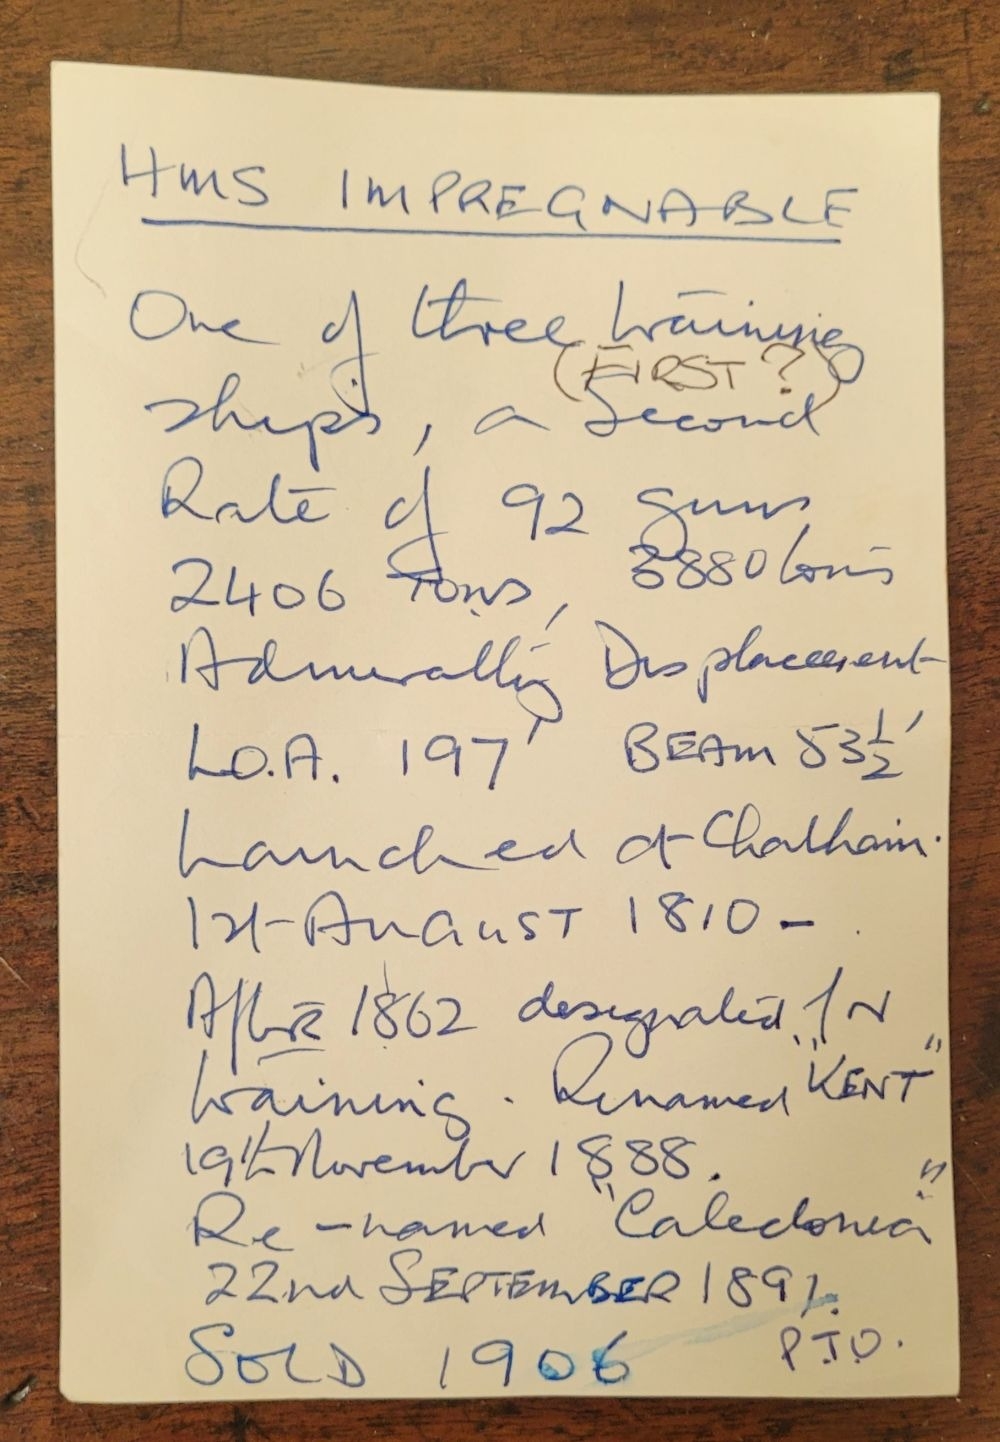 HMS IMPREGNABLE
One of three training
(FIRST?)
ships, a Second
Rate of 92 guns
2406 Tons, 3880 tons
Admiralty Displacement
L.O.A. 197' BEAM 53½'
Launched at Chatham.
1st August 1810 -
After 1862 designated for
training. Renamed "KENT"
19th November 1888.
Re-named "Caledonia"
22nd SEPTEMBER 1891.
SOLD 1906
P.T.O.